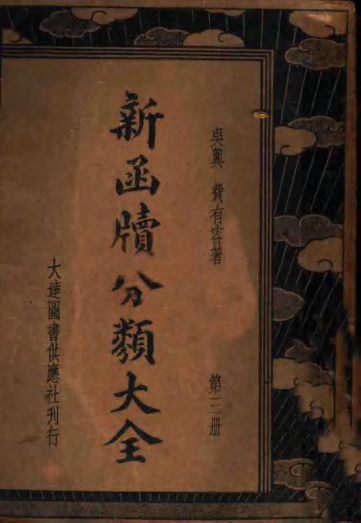 吳興 費有容著
第三册
新函牘分類大全
大達圖書供應社刊行